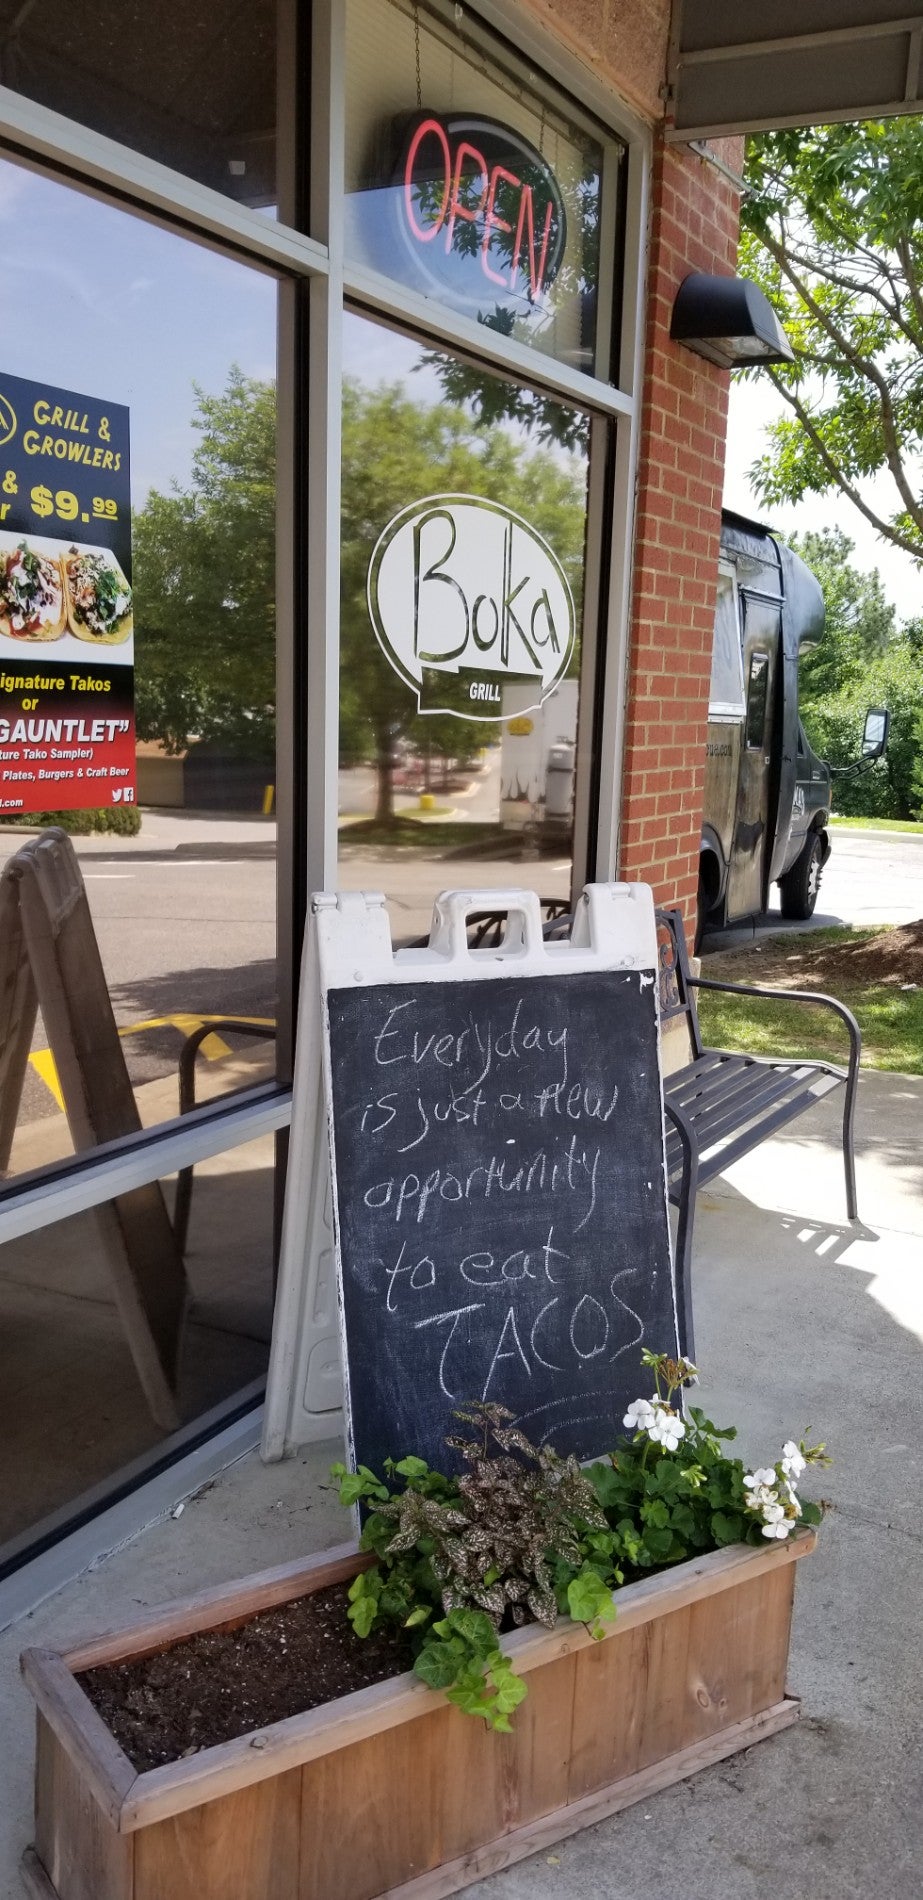 OPEN
GRILL &
GROWLERS
&
$9.99
ignature Takos
or
GAUNTLET”
ture Tako Sampler)
Plates, Burgers & Craft Beer
.com
Boka
GRILL
Everyday
is just a new
opportunity
to eat
TACOS